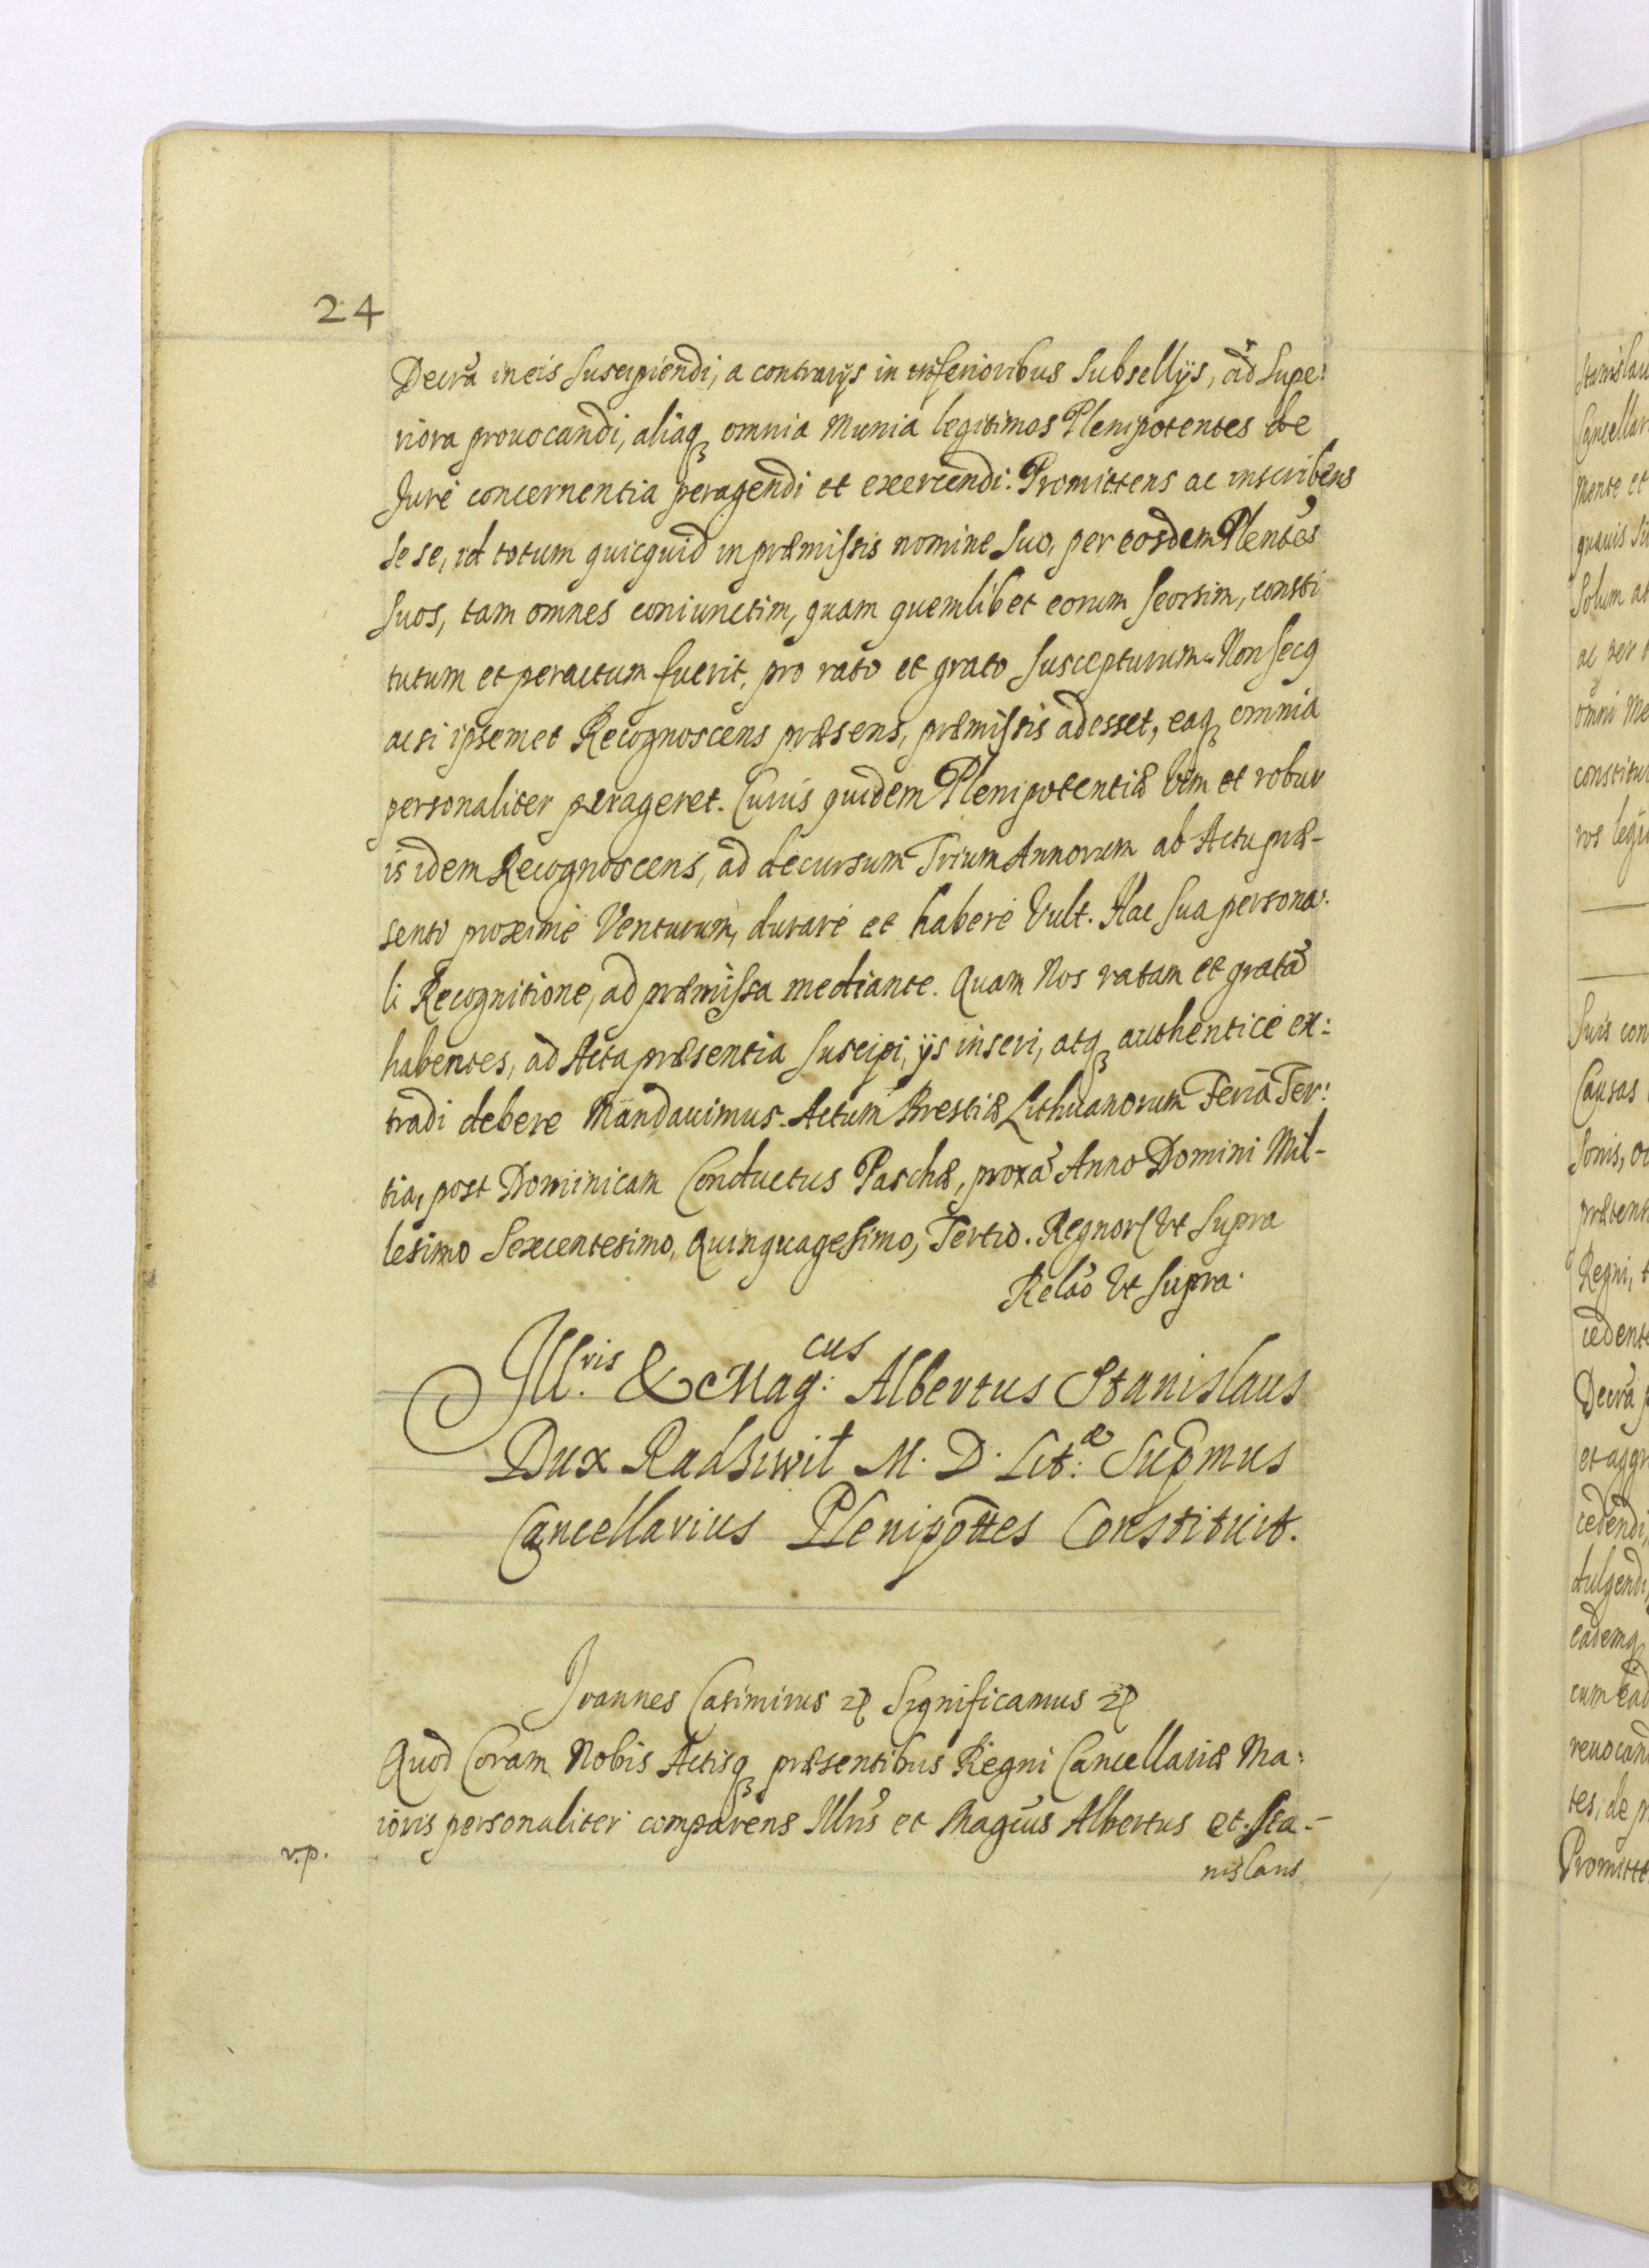 24
Decrā in eis suscipiendi, a contrarijs in inferioribus Subsellijs, ad Supe:
riora prouocandi, aliaq₃ omnia Munia legitimos Plenipotentes de
Jure concernentia peragendi et exercendi. Promittens ac inscribens
se se, id totum quicquid in præmissis nomine suo, per eosdem Plentes
suos, tam omnes coniunctim, quam quemlibet eorum seorsim, consti
tutum et peractum fuerit, pro rato et grato suscepturum. Non secq
ac si ipsemet Recognoscens præsens, præmissis adesset, eaq₃ omnia
personaliter perageret. Cuius quidem Plenipotentiæ Vim et robur
is idem Recognoscens, ad decursum Trium Annorum ab Actu præ-
senti proxime Venturum, durare et habere Vult. Hac sua persona:
li Recognitione, ad præmissa mediante. Quam Nos ratam et gratā
habentes, ad Acta præsentia suscipi, ijs inseri, atq₃ authentice ex:
tradi debere Mandauimus. Actum Brestiæ Lithuanorum Feria Ter:
tia, post Dominicam Conductus Paschæ, proxā Anno Domini Mil-
lesimo Sexcentesimo, Quinquagesimo, Tertio. Regnor Vt supra
Relão Vt supra.
Ill.ris & Mag:cus Albertus Stanislaus
Dux Radziwił M. D. Lit:æ Supmus
Cancellarius Plenipottes Constituit.
Joannes Casimirus etc Significamus etc
Quod Coram Nobis Actisq₃ præsentibus Regni Cancellariæ Ma:
ioris personaliter comparens Illris et Magcus Albertus et Sta-
v.p.
nislaus